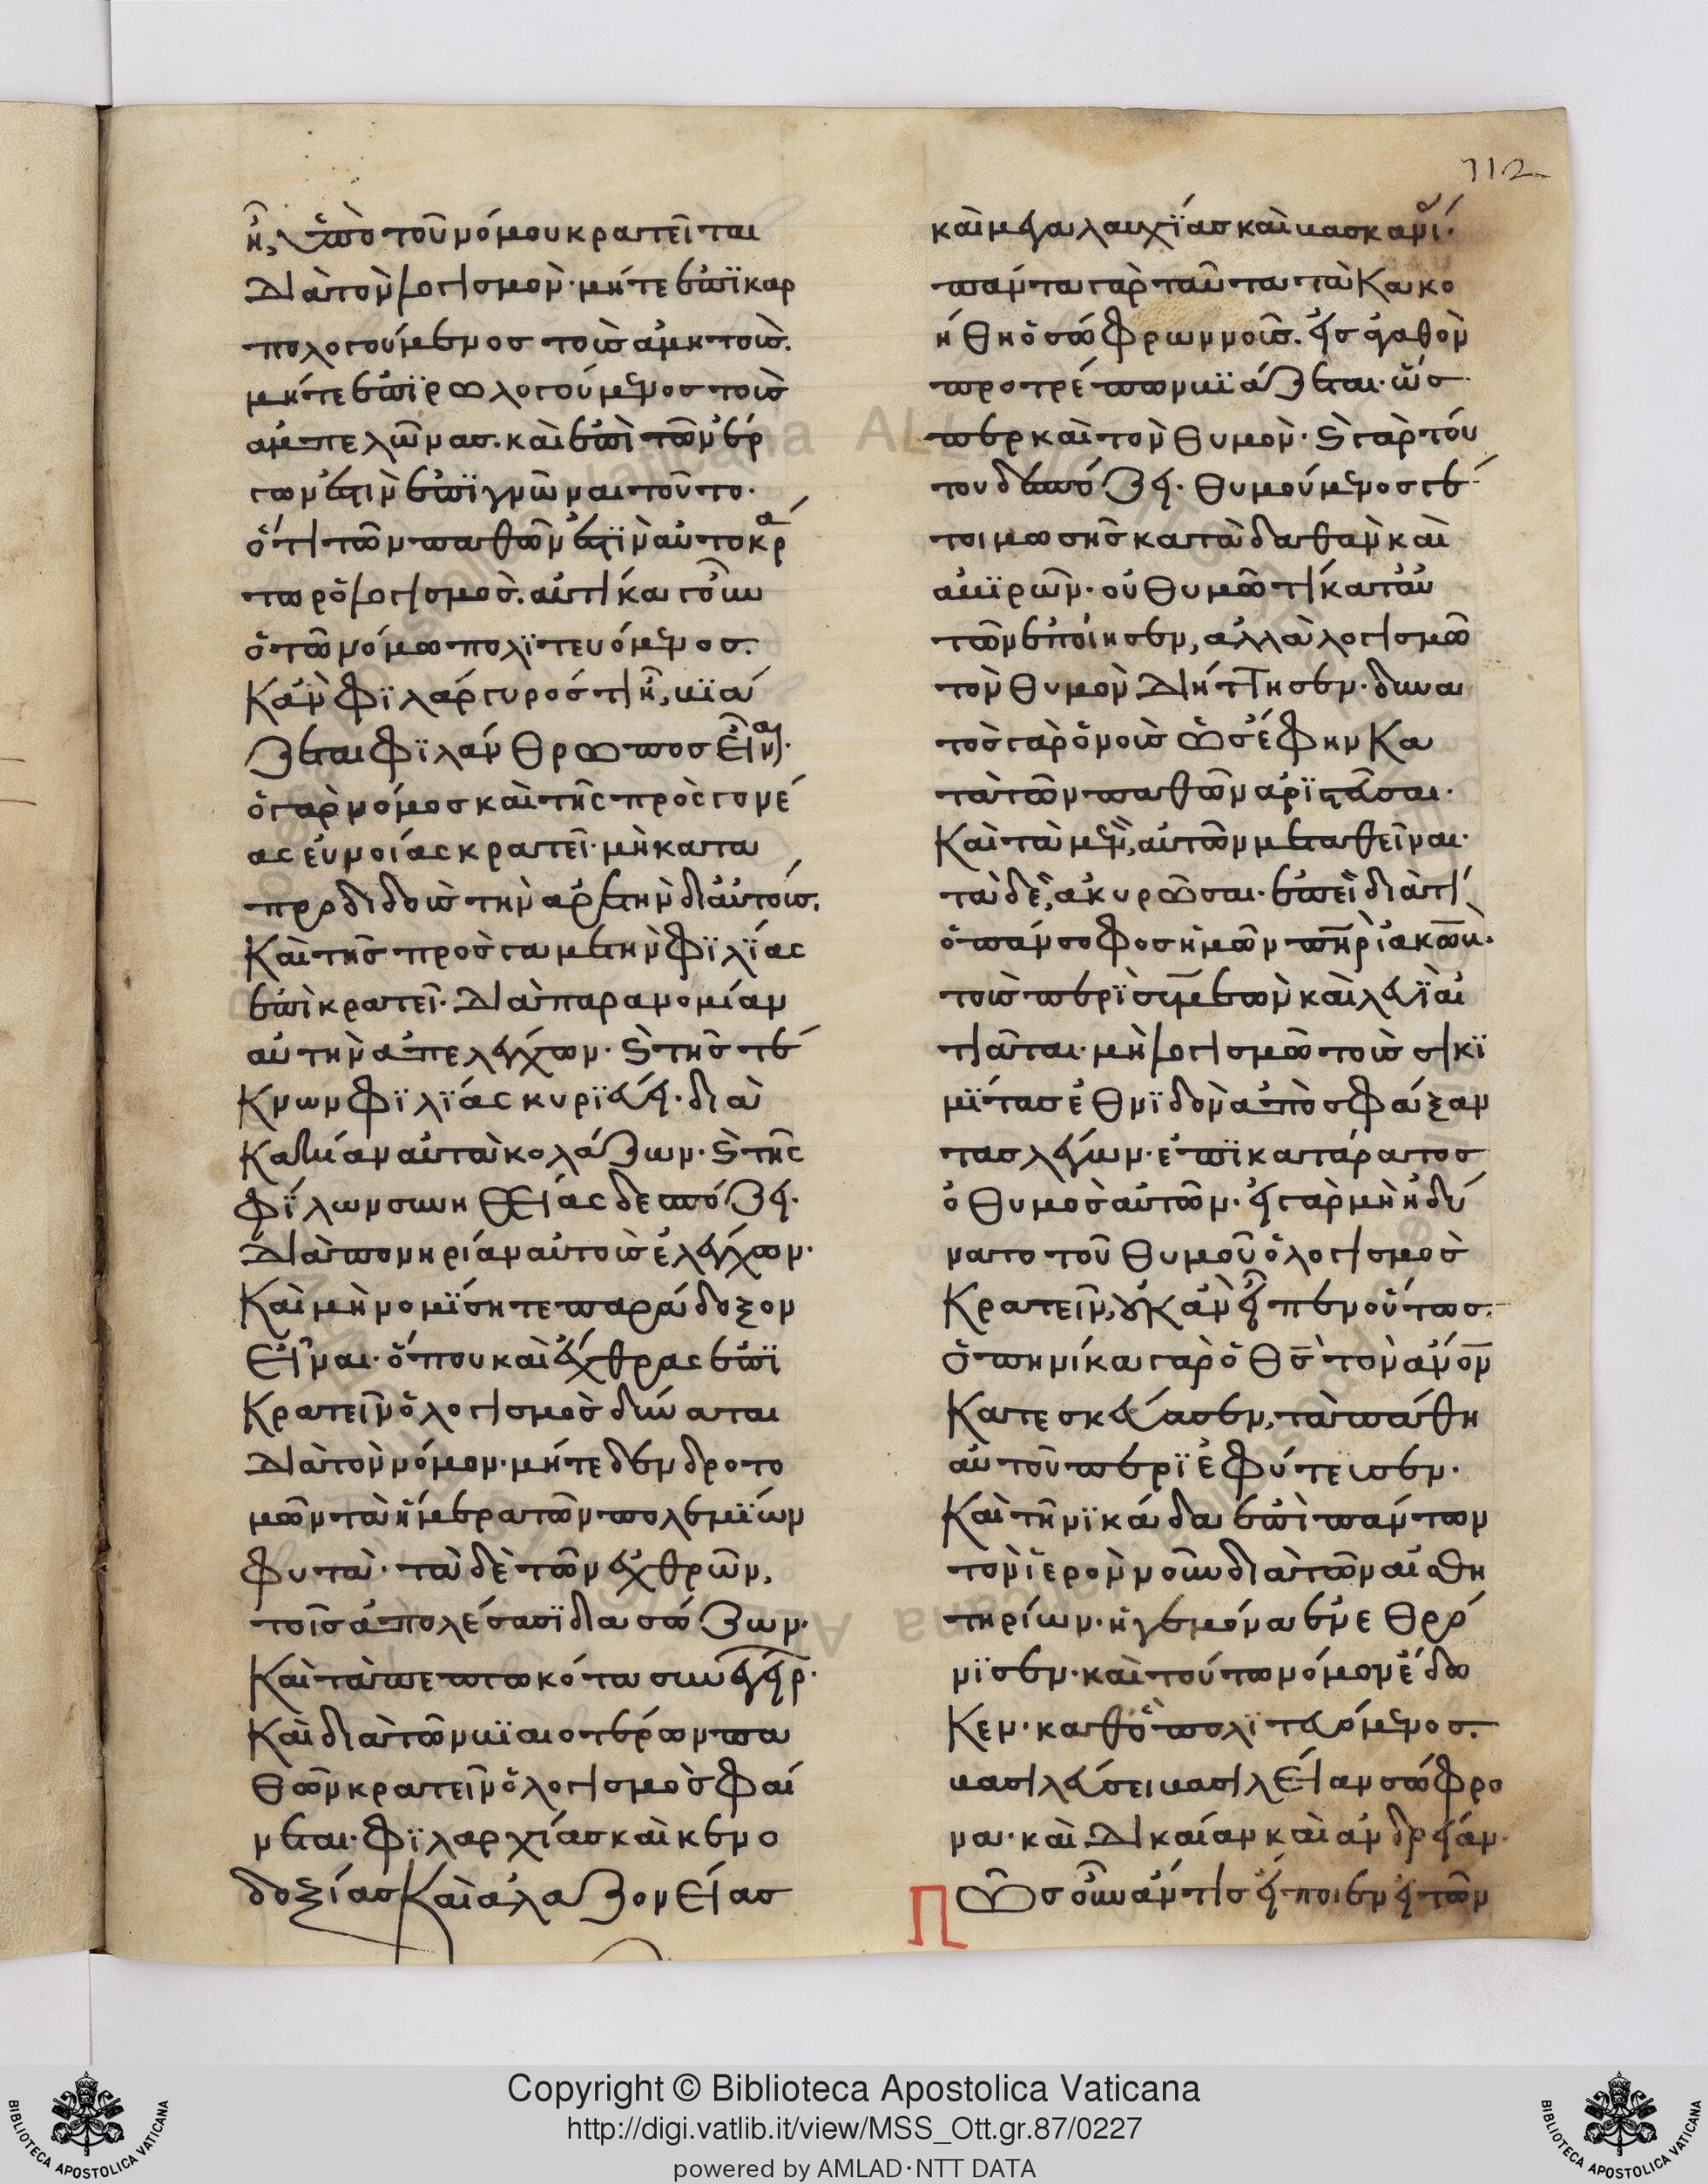 112
ἦ, ὑπὸ τοῦ νόμου κρατεῖται
διὰ τὸν λογισμὸν· μήτε ἐπικαρ
πολογούμενος τοὺς ἀμητούς.
μήτε ἐπιρωλογούμενος τοὺς
ἀμπελῶνας. καὶ ἐπὶ τῶν ἑρ
γων ἔστιν ἐπιγνῶναι τοῦτο·
ὅτι τῶν παθῶν ἐστὶν αὐτοκρά
τωρ ὁ λογισμὸς. αὐτίκα γοῦν
ὁ τῷ νόμω πολιτευόμενος.
Κἂν φιλάργυρός τις ἦ, βιά
ζεται φιλάνθρωπος εἶναι·
ὁ γὰρ νόμος καὶ τῆς πρὸς γονέ
ας εὐνοίας κρατεῖ· μὴ κατα
προδιδοὺς τὴν ἀρετὴν δι αὐτούς.
Καὶ τῆς πρὸς γαμετὴν φιλίας
ἐπικρατεῖ· διὰ παρανομίαν
αὐτὴν ἀπελέγχων· καὶ τῆς τέ
κνων φιλίας κυριεύει· διὰ
κακίαν αὐτὰ κολάζων· καὶ τῆς
φίλων συνηθείας δεσπόζει·
διὰ πονηρίαν αὐτοὺς ἐλέγχων·
Καὶ μὴ νομίσητε παράδοξον
εἶναι· ὅπου καὶ ἔχθρας ἐπι
κρατεῖν ὁ λογισμὸς δύναται
διὰ τὸν νόμον· μήτε δενδροτο
μῶν τὰ ἥμερα τῶν πολεμίων
φυτὰ· τὰ δὲ τῶν ἐχθρῶν,
τοῖς ἀπολέσασι διασώζων·
Καὶ τὰ πεπτωκότα συνεγείρ·
Καὶ διὰ τῶν βιαιοτέρων πα
θῶν κρατεῖν ὁ λογισμὸς φαί
νεται· φιλαρχίας καὶ κενο
δοξίας καὶ ἀλαζονείας
καὶ μεγαλαυχίας καὶ βασκανί·
πάντα γὰρ ταῦτα τὰ κακο
ήθη ὁ σώφρων νοῦς. εἰς ἀγαθὸν
προτρέπων βιάζεται· ὥς
περ καὶ τὸν θυμὸν· καὶ γὰρ τού
του δεσπόζει· θυμούμενος γέ
τοι μωσῆς κατὰ δαθὰν καὶ
ἀβιρῶν· οὐ θυμῶ τι κατ αὐ
τῶν ἐποίησεν, ἀλλὰ λογισμῶ
τὸν θυμὸν διήτησεν· δυνα
τὸς γὰρ ὁ νοῦς ὡς ἔφην κα
τὰ τῶν παθῶν ἀριστεῦσαι·
Καὶ τὰ μὲν, αὐτῶν μεταθεῖναι·
τὰ δὲ, ἀκυρῶσαι· ἐπεὶ διὰ τί
ὁ πάνσοφος ἡμῶν πηρ ἰακὼβ·
τοὺς περὶ συμεὼν καὶ λευὶ αἰ
τιᾶται· μὴ λογισμῶ τοὺς σικι
μίτας ἐθνιδὸν ἀποσφάξαν
τας λέγων· ἐπικατάρατος
ὁ θυμὸς αὐτῶν· εἰ γὰρ μὴ ἠδύ
νατο τοῦ θυμοῦ ὁ λογισμὸς
κρατεῖν, οὐκ ἂν εἶπεν οὕτως.
ὁπηνίκα γὰρ ὁ θς τὸν ἄνον
κατεσκεύασεν, τὰ πάθη
αὐτοῦ περιεφύτευσεν·
Καὶ τηνικάδα ἐπὶ πάντων
τὸν ἱερὸν νοῦν διὰ τῶν αἰσθη
τηρίων· ἡγεμόνα ἐνεθρό
νισεν· καὶ τούτω νόμον ἔδω
κεν· καθ ὃ πολιτευόμενος.
βασιλεύσει βασιλείαν σώφρο
να· καὶ δικαίαν καὶ ἀνδρείαν·
Πῶς οὖν ἄν τις εἴποιεν εἰ τῶν
Copyright © Biblioteca Apostolica Vaticana
http://digi.vatlib.it/view/MSS_Ott.gr.87/0227
powered by AMLAD·NTT DATA
BIBLIOTECA APOSTOLICA VATICANA
BIBLIOTECA APOSTOLICA VATICANA